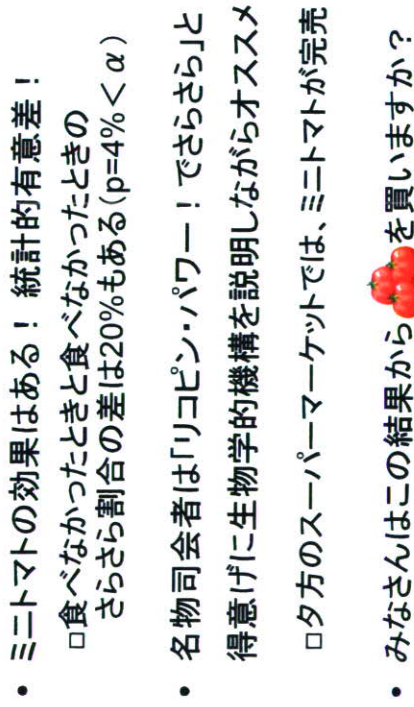 • ミニトマトの効果はある！ 統計的有意差！
□食べなかったときと食べなかったときの
さらさら割合の差は20%もある(p=4%＜α)
• 名物司会者は「リコピン・パワー！でさらさら」と
得意げに生物学的機構を説明しながらオススメ
□夕方のスーパーマーケットでは、ミニトマトが完売
• みなさんはこの結果から を買いますか？